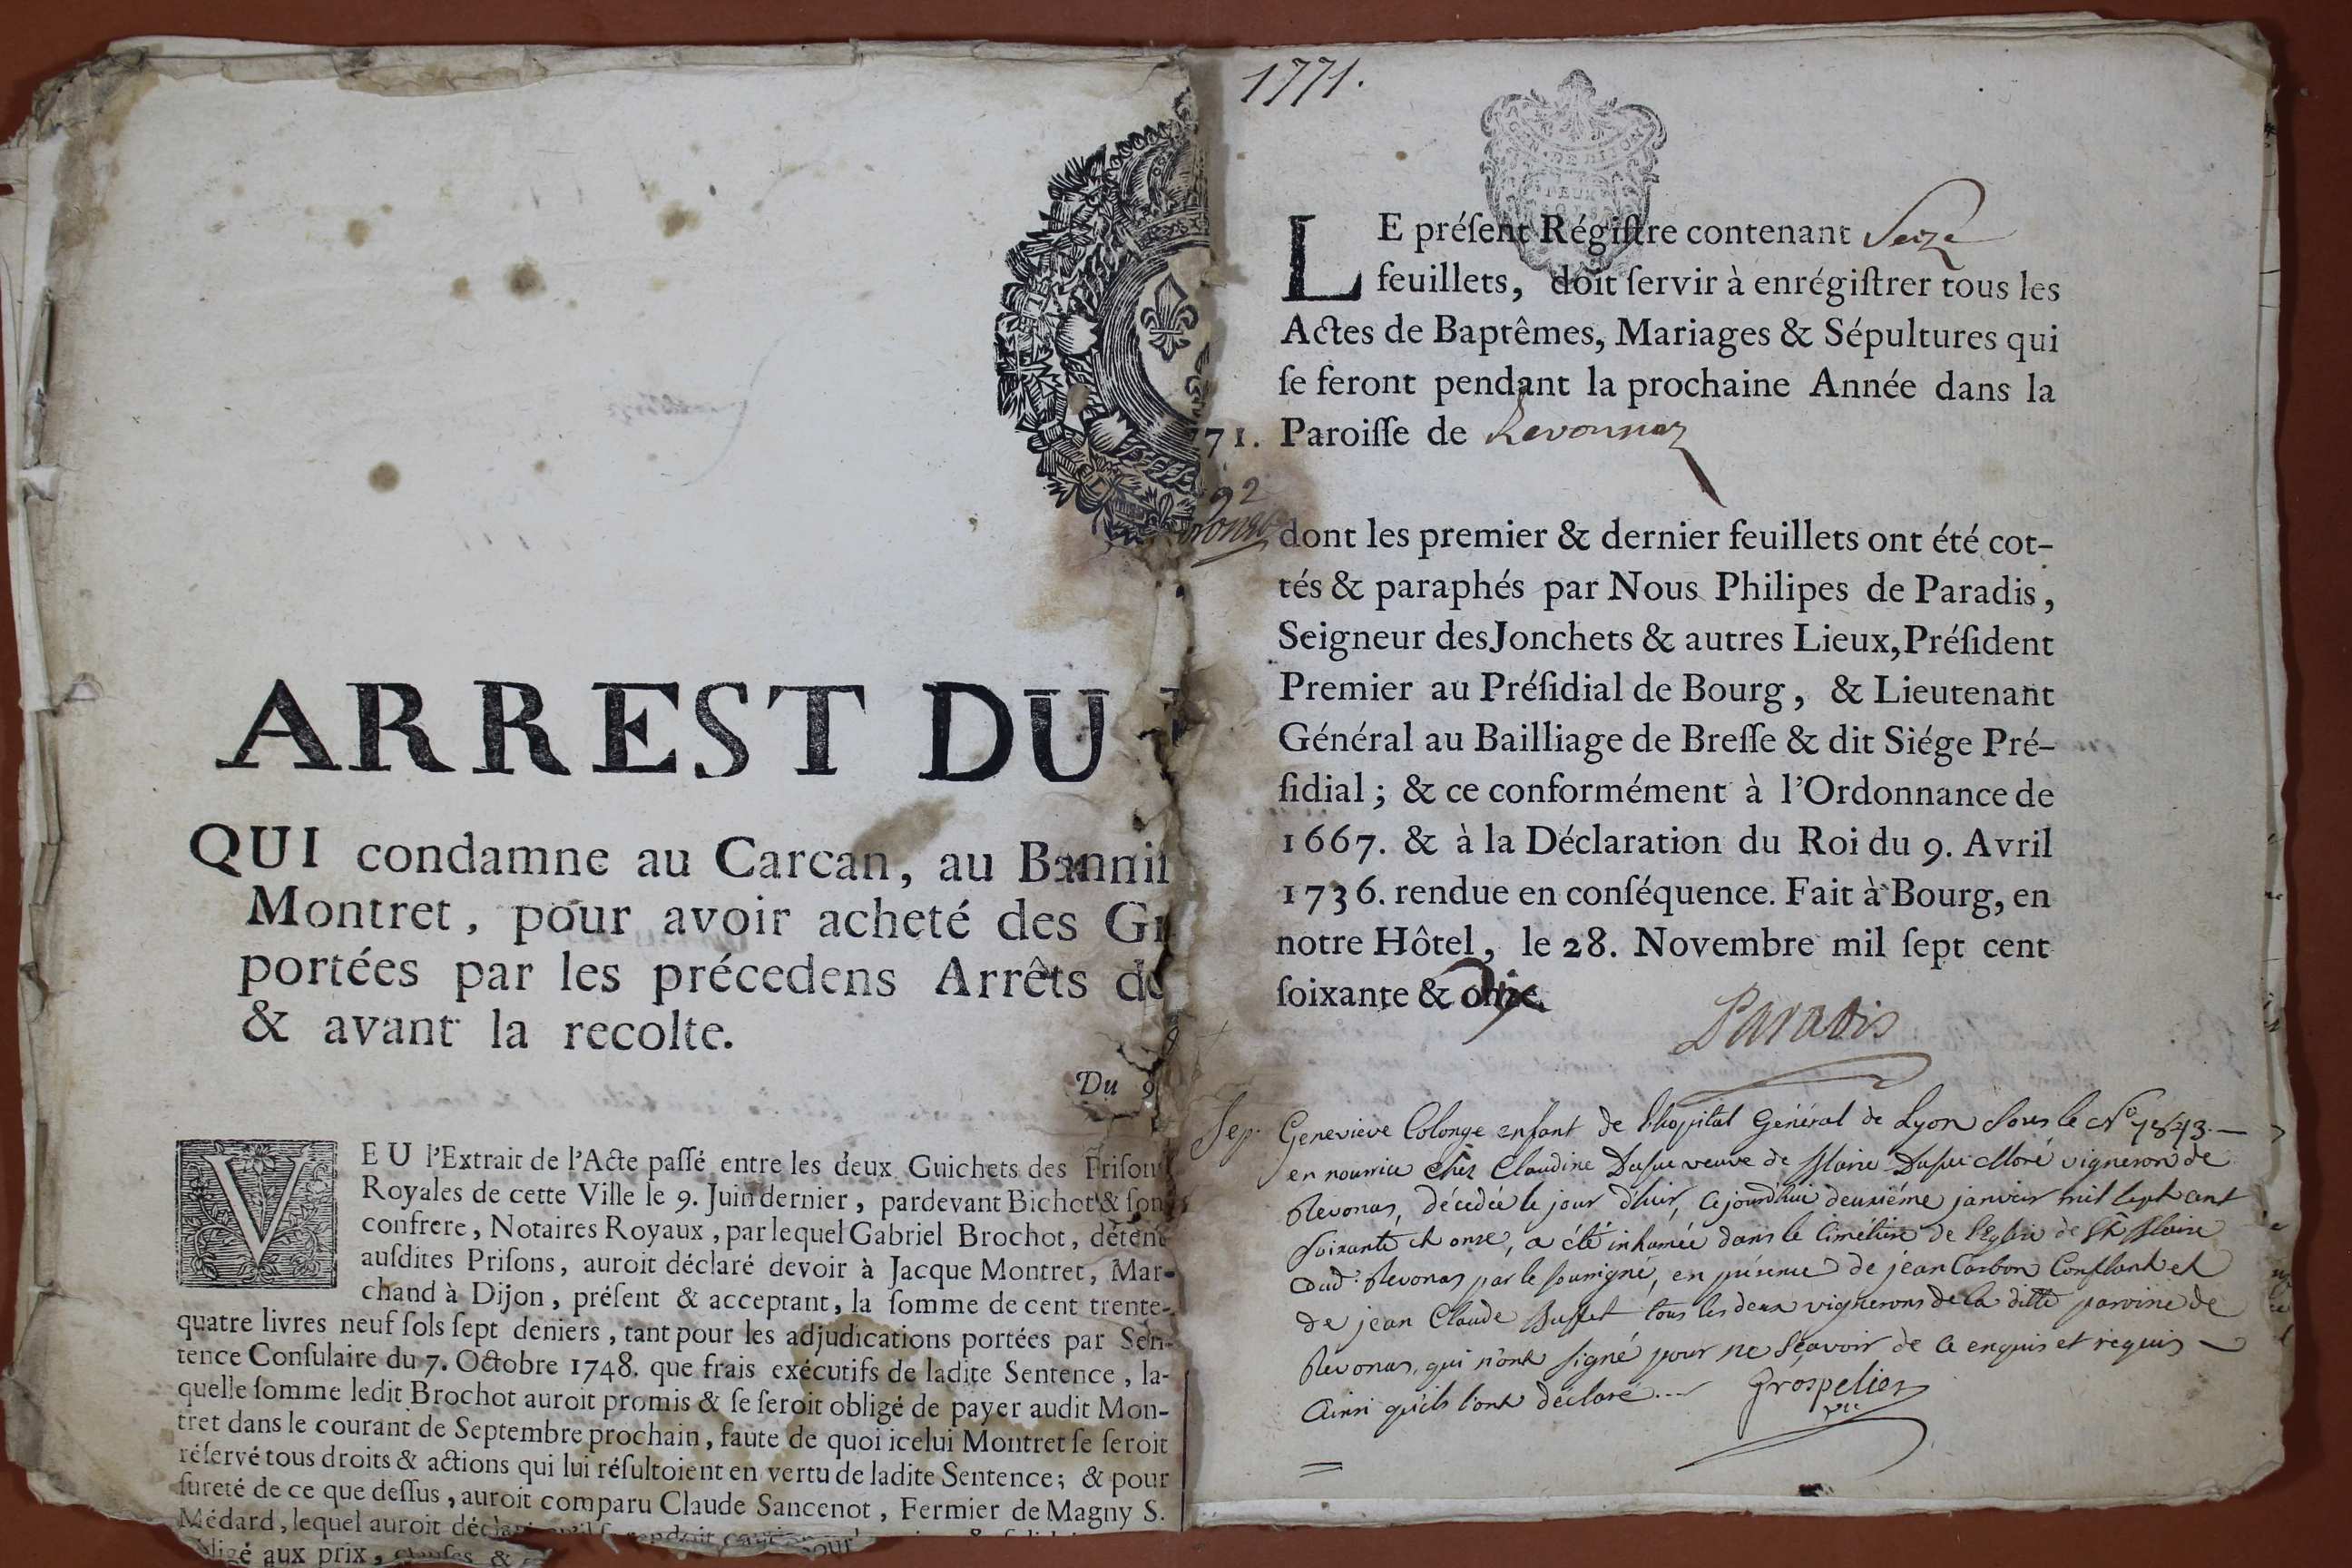 ARREST DU
QUI condamne au Carcan, au Bannis
Montret, pour avoir acheté des Gr
portées par les précedens Arrêts de
& avant la recolte.
Du 9
VEU l'Extrait de l'Acte paſſé entre les deux Guichets des Priſons
Royales de cette Ville le 9. Juin dernier, pardevant Bichot & ſon
confrere, Notaires Royaux, par lequel Gabriel Brochot, détenu
auſdites Priſons, auroit déclaré devoir à Jacque Montret, Mar-
chand à Dijon, préſent & acceptant, la ſomme de cent trente-
quatre livres neuf ſols ſept deniers, tant pour les adjudications portées par Sen-
tence Conſulaire du 7. Octobre 1748. que frais exécutifs de ladite Sentence, la-
quelle ſomme ledit Brochot auroit promis & ſe ſeroit obligé de payer audit Mon-
tret dans le courant de Septembre prochain, faute de quoi icelui Montret ſe ſeroit
réſervé tous droits & actions qui lui réſultoient en vertu de ladite Sentence; & pour
ſureté de ce que deſſus, auroit comparu Claude Sancenot, Fermier de Magny S.
Médard, lequel auroit
obligé aux prix, clauses &
1771.
GEN. DE DIJON
DEUX
LE préſent Régiſtre contenant Seize
feuillets, doit ſervir à enrégiſtrer tous les
Actes de Baptêmes, Mariages & Sépultures qui
ſe feront pendant la prochaine Année dans la
71. Paroiſſe de Revonnaz
92
dont les premier & dernier feuillets ont été cot-
tés & paraphés par Nous Philipes de Paradis,
Seigneur des Jonchets & autres Lieux, Préſident
Premier au Préſidial de Bourg, & Lieutenant
Général au Bailliage de Breſſe & dit Siége Pré-
ſidial; & ce conformément à l'Ordonnance de
1667. & à la Déclaration du Roi du 9. Avril
1736. rendue en conſéquence. Fait à Bourg, en
notre Hôtel, le 28. Novembre mil ſept cent
ſoixante & dix
Paradis
Sep. Genevieve Colonge enfant de l'hopital Général de Lyon Sous le N°
en nourrice chés Claudine Dufur veuve de Blaise Dufur vigneron de
Revonas, décedée le jour d'hier, ce jourd'hui deuxiéme janvier mil sept cent
soixante et onze, a été inhumée dans le Cimétière de l'Eglise de St. Blaise
dud. Revonas par le soussigné, en présence de jean Carbon Conflant et
de jean Claude Buffet tous les deux vignerons de la ditte paroisse de
Revonas, qui n'ont signé pour ne sçavoir de ce enquis et requis
Ainsi qu'ils l'ont déclaré... Grospelier
vic